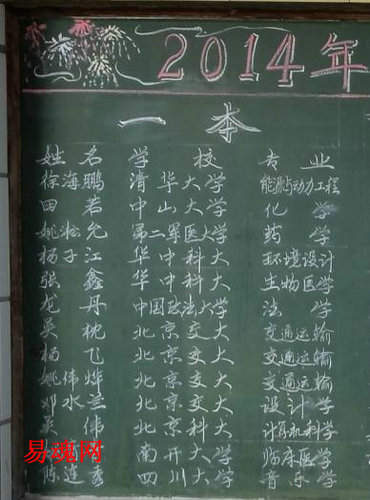 2014年
一本
姓名 学校 专业
徐海鹏 清华大学 能源与动力工程
田若 中山大学 化学
姚淞允 第二军医大学 药学
杨子江 华中科大 环境设计
张鑫 华中科大 生物医学
龙丹 中国政法大学 法学
吴枕 北京交大 交通运输
杨飞 北京交大 交通运输
姚伟烨 北京交大 交通运输
邓水兰 北京交大 设计学
吴伟 北京科大 计算机科学
南开大学 临床医学
陈连秀 四川大学 音乐学
易魂网